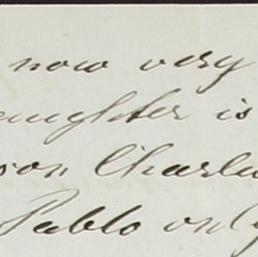 now very
aughter is
son Charle
Pablo on